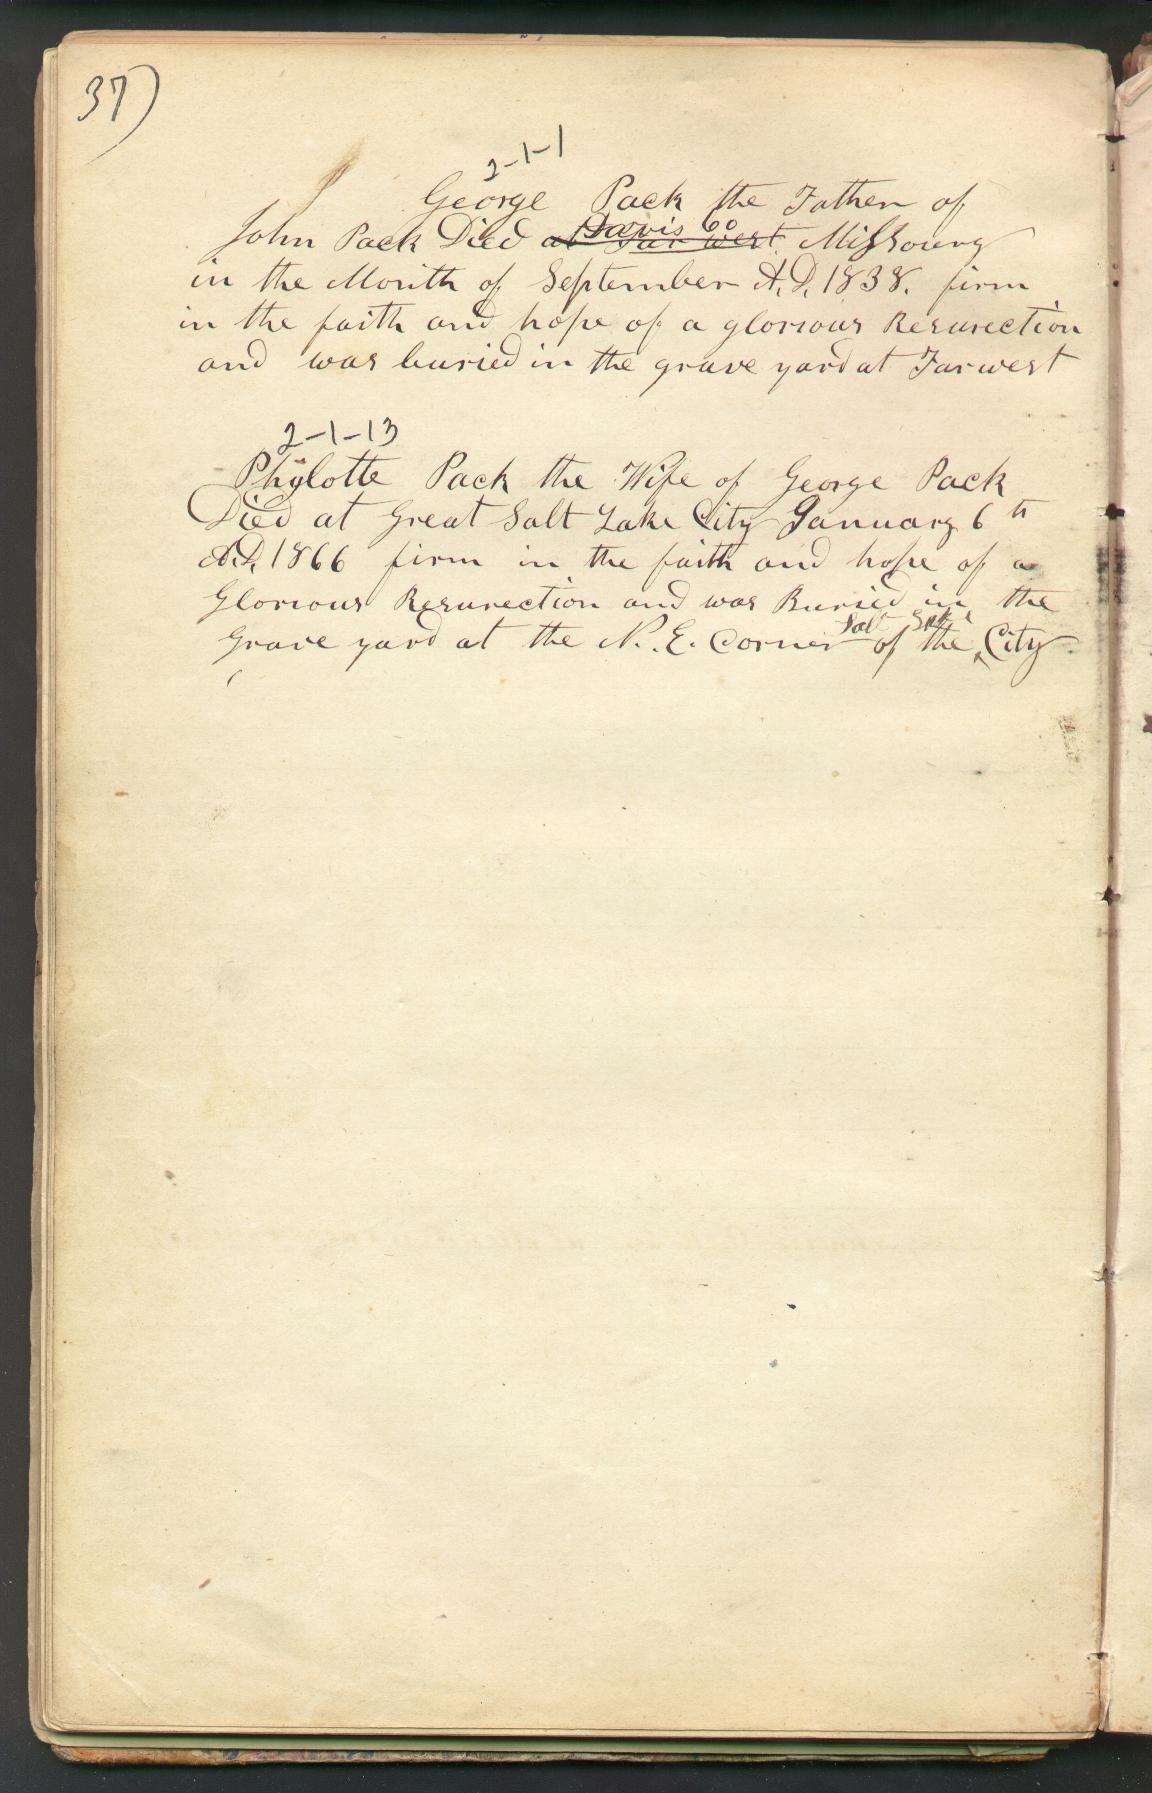 37)
2-1-1
George Pack the Father of
Davis Co
John Pack Died at Far West Missoury
in the Month of September A.D. 1838. firm
in the faith and hope of a glorious Resurection
and was buried in the grave yard at Farwest
2-1-13
Phylotte Pack the Wife of George Pack
Died at Great Salt Lake City January 6th
A.D. 1866 firm in the faith and hope of a
Glorious Resurection and was Buried in the
Salt
Grave yard at the N. E. Corner of the City